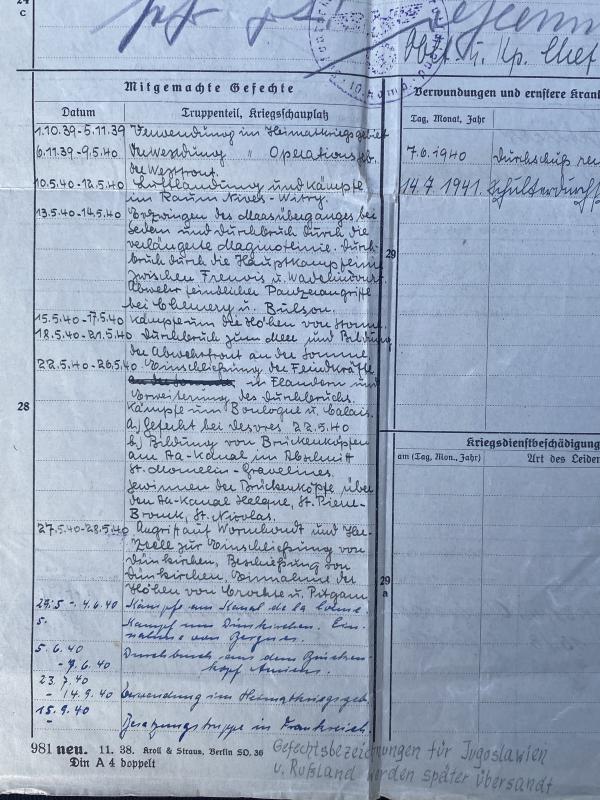 24
c
Oblt. u. Kp. Chef
Mitgemachte Gefechte
Datum
Truppenteil, Kriegsschauplatz
1.10.39-5.11.39 Verwendung im Heimatkriegsgebiet
6.11.39-9.5.40 Verwendung " Operationsgeb.
der Westfront.
10.5.40-12.5.40 Luftlandung und Kämpfe
im Raum Nives-Witry.
13.5.40-14.5.40 Erzwingen des Maasüberganges bei
Sedan und Durchbruch durch die
verlängerte Maginotlinie. Durch-
bruch durch die Hauptkampflinie
zwischen Frenois u. Wadelincourt
Abwehr feindlicher Panzerangriffe
bei Chemery u. Bulson.
15.5.40-17.5.40 Kämpfe um die Höhen von Stonne.
18.5.40-21.5.40 Durchbruch zum Meer und Bildung
der Abwehrfront an der Somme.
22.5.40-26.5.40 Einschließung der Feindkräfte
in Flandern und
Erweiterung des Durchbruchs.
Kämpfe um Boulogne u. Calais.
a) Gefecht bei Desvres 22.5.40
b) Bildung von Brückenköpfen
am Aa-Kanal im Abschnitt
St. Momelin-Gravelines.
Gewinnen der Brückenköpfe über
den Aa-Kanal Holque, St. Pierre-
Brouck, St. Nicolas.
27.5.40-28.5.40 Angriff auf Wormhoudt und Her-
zeele zur Einschließung von
Dünkirchen, Beschießung von
Dünkirchen, Einnahme der
Höhen von Crochte u. Pitgam
29.5-4.6.40 Kämpfe am Kanal de la Colme.
5. Kampf um Dünkirchen. Ein-
nahme von Bergues.
5.6.40
-7.6.40 Durchbruch aus dem Brücken-
kopf Amiens.
23.7.40
-14.9.40 Verwendung im Heimatkriegsgeb.
15.9.40
- Besatzungstruppe in Frankreich
28
981 neu. 11. 38. Kroll & Straus, Berlin SO. 36
Din A 4 doppelt
Verwundungen und ernstere Krank
Tag, Monat, Jahr
7.6.1940 Durchschuß
14.7.1941. Schulterdurch
29
Kriegsdienstbeschädigung
am (Tag, Mon., Jahr)
Art des Leiden
29
a
Gefechtsbezeichnungen für Jugoslawien
u. Rußland werden später übersandt